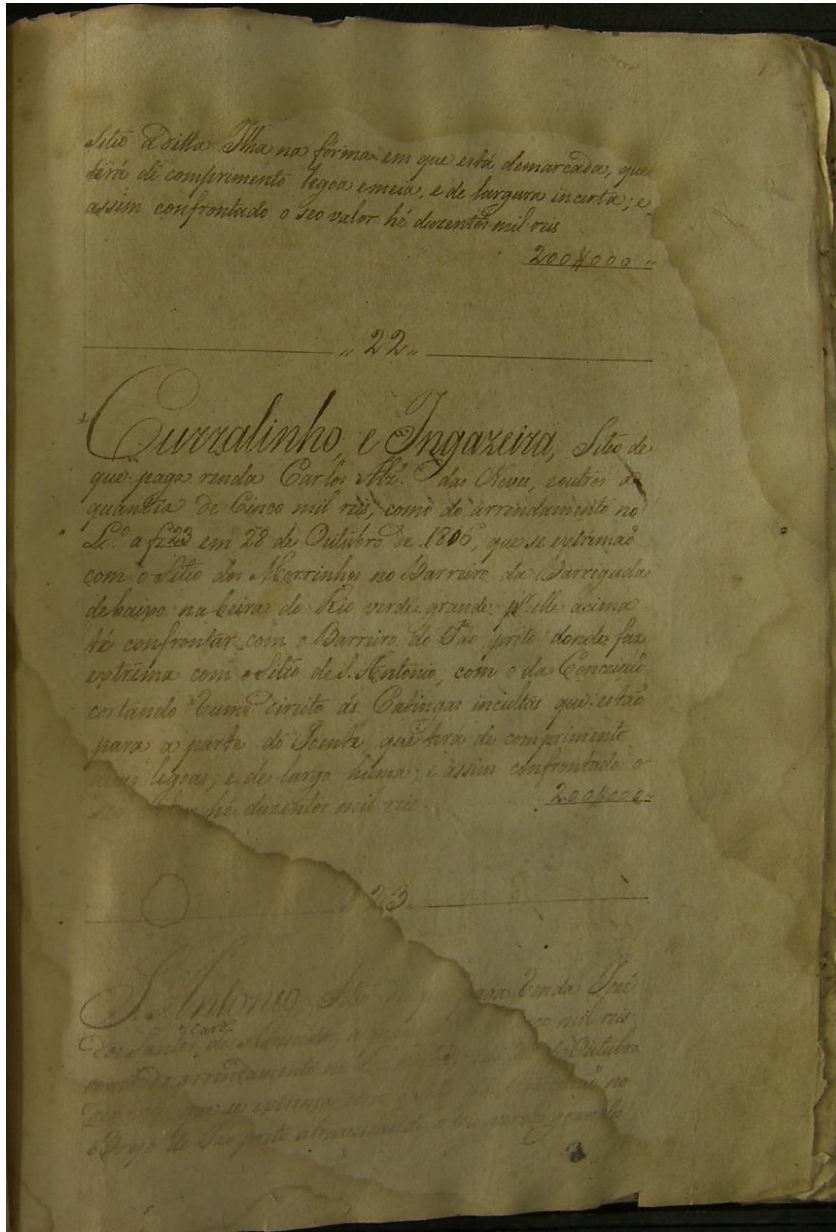 Sitio a ditta Ilha na fórma em que está demarcada, que
terá de comprimento legoa e meia, e de largura incerta; e
assim confrontado o seo valor hé duzentos mil reis
200$000 "
" 22 "
Curralinho, e Ingazeira, Sitio de
que paga renda Carlos Alz.ˢ das Neves, e outros a
quantia de Cinco mil reis, como do arrendamento no
L.º a f. 23 em 28 de Outubro de 1806, que se extremaõ
com o Sitio dos Morrinhos no Barreiro da Barriguda
debaixo na beira do Rio verde grande, p.ʳ elle acima
té confrontar com o Barreiro do Páo preto donde faz
extrema com o Sitio de S. Antonio, com o da Conceicaõ
cortando rumo direito ás Catingas incultas que estaõ
para a parte do Poente, que terá de comprimento
legoas, e de largo huma; e assim confrontado o
hé duzentos mil reis.
200$000 "
23
S. Antonio, Sitio de que paga renda José
dos Santos Card.º de Almeida a mil reis
como do arrendamento no Outubro
que se extrema com o Sitio no
do Páo preto atravessando o Rio verde grande